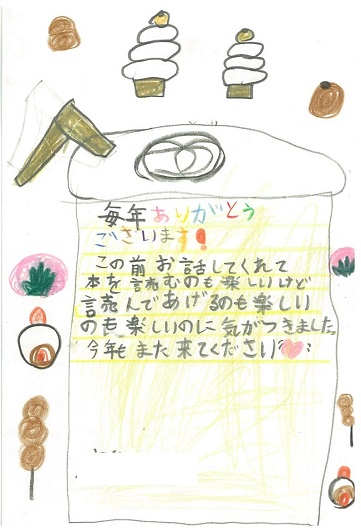 毎年ありがとう
ございます!
この前お話してくれて
本を読むのも楽しいけど
読んであげるのも楽しい
のも楽しいのに気がつきました。
今年もまた来てください